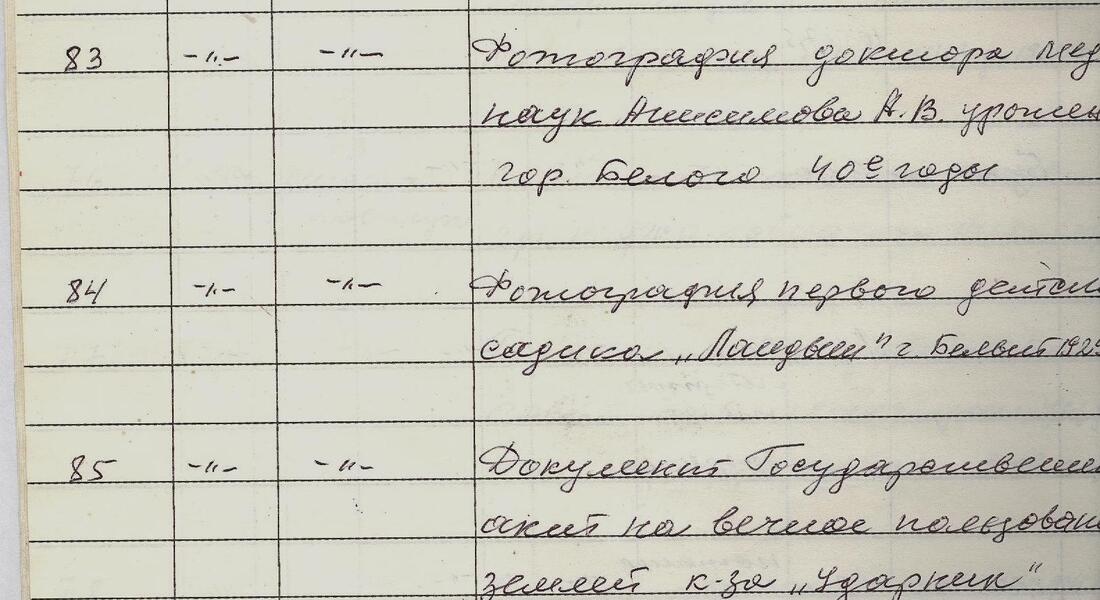 83 -"- -"- Фотография доктора мед
наук Анисимова А.В. урожен
гор. Белого 40е годы
84 -"- -"- Фотография первого детск
садика „Ландыш" г Белый 1929
85 -"- -"- Документ Государственн
акт на вечное пользован
землей к-за „Ударник"